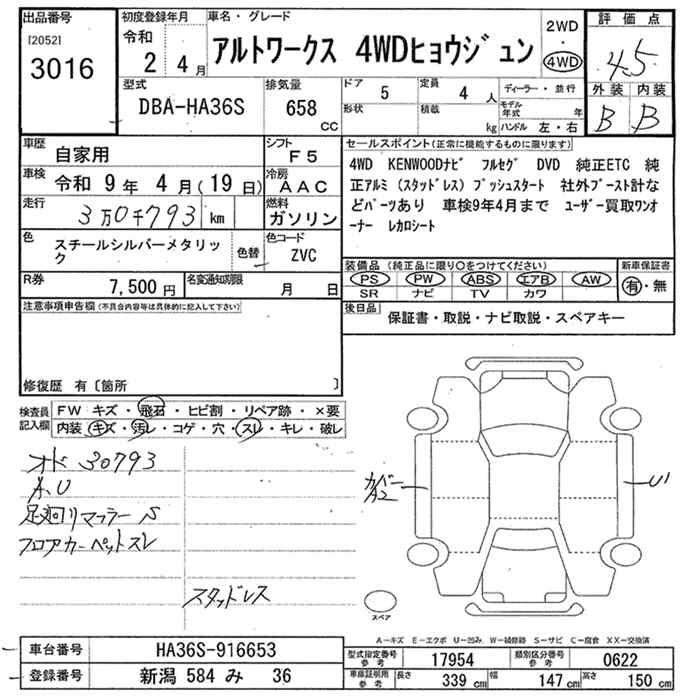 出品番号
[2052]
3016
初度登録年月
令和
2 4 月
車名・グレード
アルトワークス 4WDヒョウジュン
2WD
・
4WD
評価点
4.5
外装 内装
B B
型式
DBA-HA36S
排気量
658 cc
ドア
5
形状
定員
4 人
積載
kg
ディーラー・並行
モデル年式 年
ハンドル 左・右
車歴
自家用
シフト
F5
車検
令和 9年 4月(19日)
冷房
AAC
走行
3万0千793 km
燃料
ガソリン
色
スチールシルバーメタリック
色替
色コード
ZVC
R券
7,500円
名変通知期限
月 日
セールスポイント(正常に機能するものに限ります)
4WD KENWOODナビ フルセグ DVD 純正ETC 純
正アルミ(スタッドレス)プッシュスタート 社外ブースト計な
どパーツあり 車検9年4月まで ユーザー買取ワンオ
ーナー レカロシート
装備品(純正品に限り○をつけてください)
PS PW ABS エアB AW
SR ナビ TV カワ
新車保証書
有・無
後日品
保証書・取説・ナビ取説・スペアキー
注意事項申告欄(不具合内容等は具体的に記入して下さい)
修復歴 有〔箇所 〕
検査員記入欄
FW キズ・飛石・ヒビ割・リペア跡・×要
内装・キズ・汚レ・コゲ・穴・スレ・キレ・破レ
オド 30793
A、U
足廻リマフラーS
フロアカーペットスレ
スタッドレス
カバー
A2
U1
スペア
A－キズ E－エクボ U－凹み W－補修跡 S－サビ C－腐食 XX－交換済
車台番号
HA36S-916653
登録番号
新潟 584 み 36
型式指定番号
参考
17954
類別区分番号
参考
0622
車庫証明用
参考
長さ
339 cm
幅
147 cm
高さ
150 cm